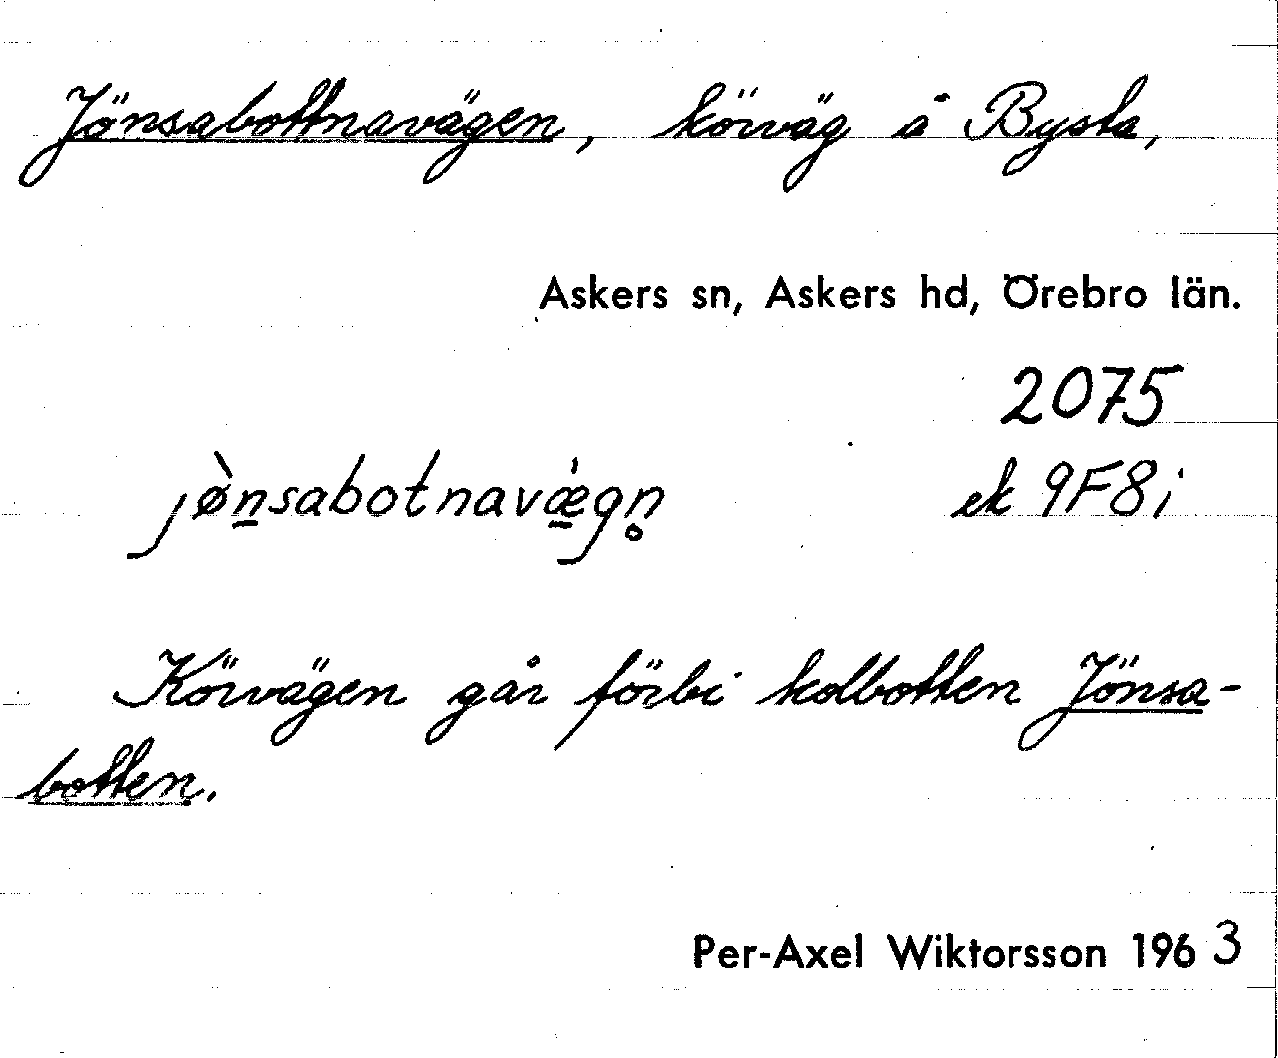 Jönsabottnavägen, körväg å Bysta,
Askers sn, Askers hd, Örebro län.
2075
jø̀n̠sabotnavǽ̠gn̥ ek 9F8i
Körvägen går förbi kolbotten Jönsa-
botten.
Per-Axel Wiktorsson 1963